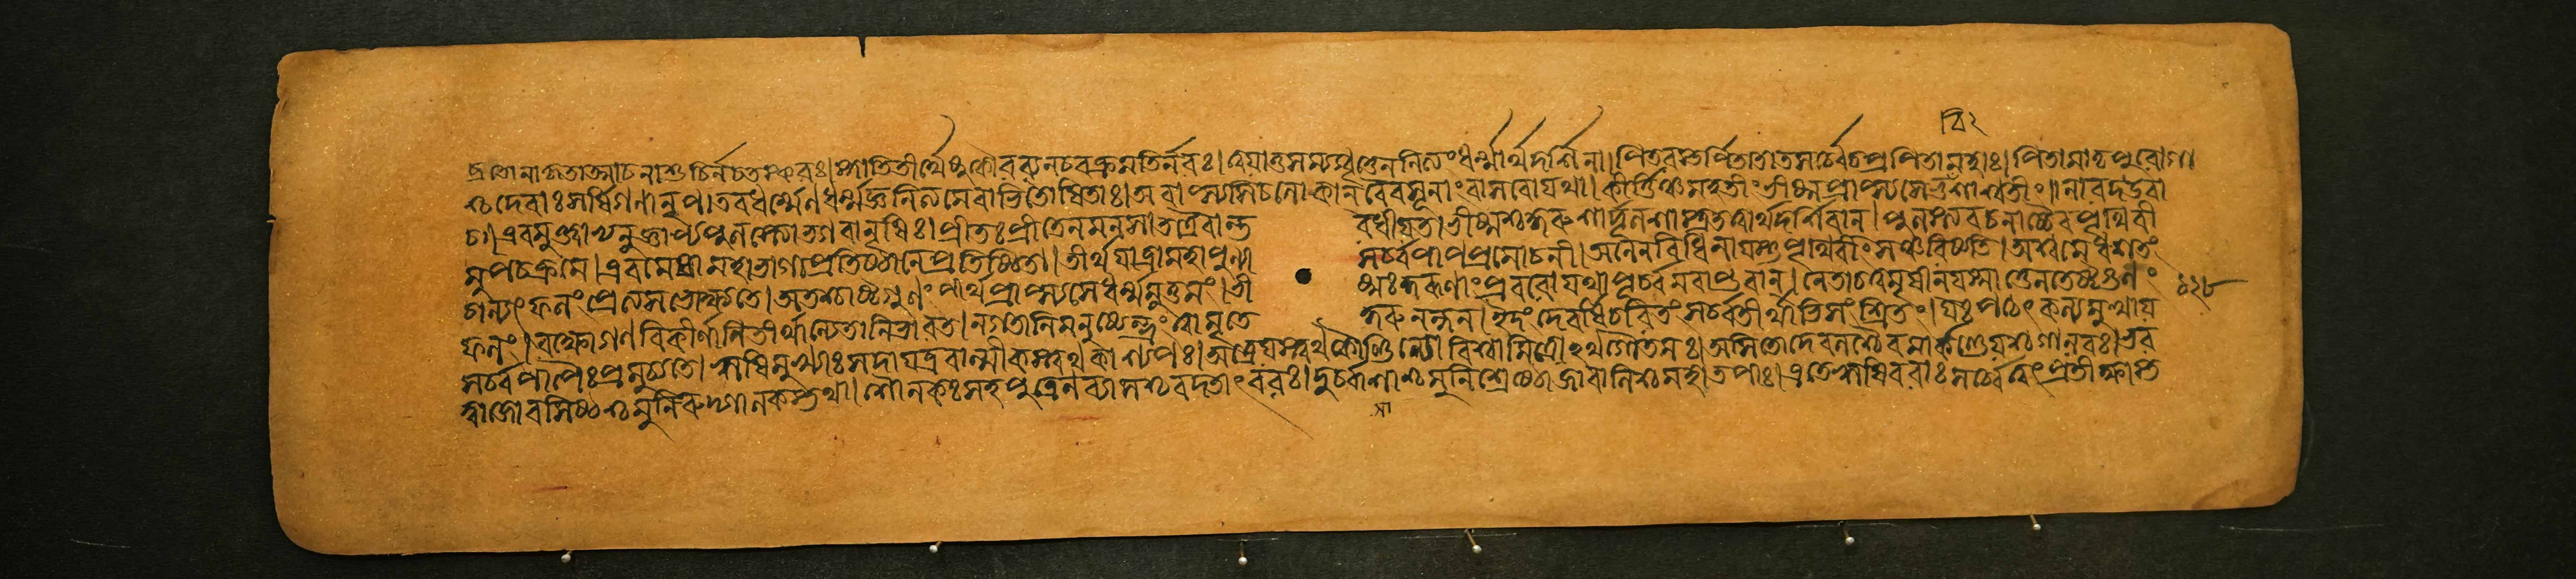 ব্রতোনাকৃতাত্মাচনাশুচির্নচতস্করঃ।স্নাতিতীর্থেষুকৌরব্যনচবক্রমতির্নরঃ।ত্বয়াতুসম্যগ্বৃত্তেননিত্যংধর্ম্মার্থদর্শিনা।পিতরস্তর্পিতাতাতসর্ব্বেচপ্রপিতামহাঃ।পিতামহপুরোগা
শ্চদেবাঃসর্ষিগণানৃপ।তবধর্ম্মেণধর্ম্মজ্ঞনিত্যমেবাভিতোষিতাঃ।অবাপ্স্যসিচলোকানবৈবসূনাংবাসবোযথা।কীর্ত্তিঞ্চমহতীংভীষ্মপ্রাপ্স্যসেভুবিশাশ্বতীং।নারদউবা
চ।এবমুক্ত্বাভ্যনুজ্ঞাপ্যপুলস্ত্যোভগবানৃষিঃ।প্রীতঃপ্রীতেনমনসাতত্রৈবান্ত রধীয়ত।ভীষ্মশ্চকুরুশার্দ্দূলশাস্ত্রতত্ত্বার্থদর্শিবান্।পুলস্ত্যবচনাচ্চৈবপৃথিবী
মুপচক্রমে।এবমেষামহাভাগাপ্রতিষ্ঠানেপ্রতিষ্ঠিতা।তীর্থযাত্রামহাপুণ্যা সর্ব্বপাপপ্রমোচনী।অনেনবিধিনাযস্তুপৃথিবীংসঞ্চরিষ্যতি।অশ্বমেধশতং
চাগ্র্যংফলংপ্রেত্যসভোক্ষ্যতে।অতশ্চাষ্টগুণংপার্থপ্রাপ্স্যসেধর্ম্মমুত্তমং।ভী ষ্মঃকুরূণাংপ্রবরোযথাপূর্ব্বমবাপ্তবান্।নেতাচত্বমৃষীনযস্মাত্তেনতেষ্টগুণং ১২৮
ফলং।রক্ষোগণবিকীর্ণানিতীর্থান্যেতানিভারত।নগতানিমনুষ্যেন্দ্রত্বামৃতে কুরুনন্দন।ইদংদেবর্ষিচরিতংসর্ব্বতীর্থাভিসংশ্রিতং।যঃপঠেৎকল্যমুত্থায়
সর্ব্বপাপৈঃপ্রমুচ্যতে।ঋষিমুখ্যাঃসদাযত্রবাল্মীকস্ত্বথকাশ্যপঃ।আত্রেয়স্ত্বথকৌণ্ডিন্যোবিশ্বামিত্রোঽথগৌতমঃ।অসিতোদেবলশ্চৈবমার্কণ্ডেয়শ্চগালবঃ।ভর
দ্বাজোবসিষ্ঠশ্চমুনিরুদ্দালকস্তথা।শৌনকঃসহপুত্রেণব্যাসশ্চবদতাংবরঃ।দুর্ব্বাসাশ্চমুনিশ্রেষ্ঠোজাবালিশ্চমহাতপাঃ।এতেঋষিবরাঃসর্ব্বেত্বৎপ্রতীক্ষাস্ত